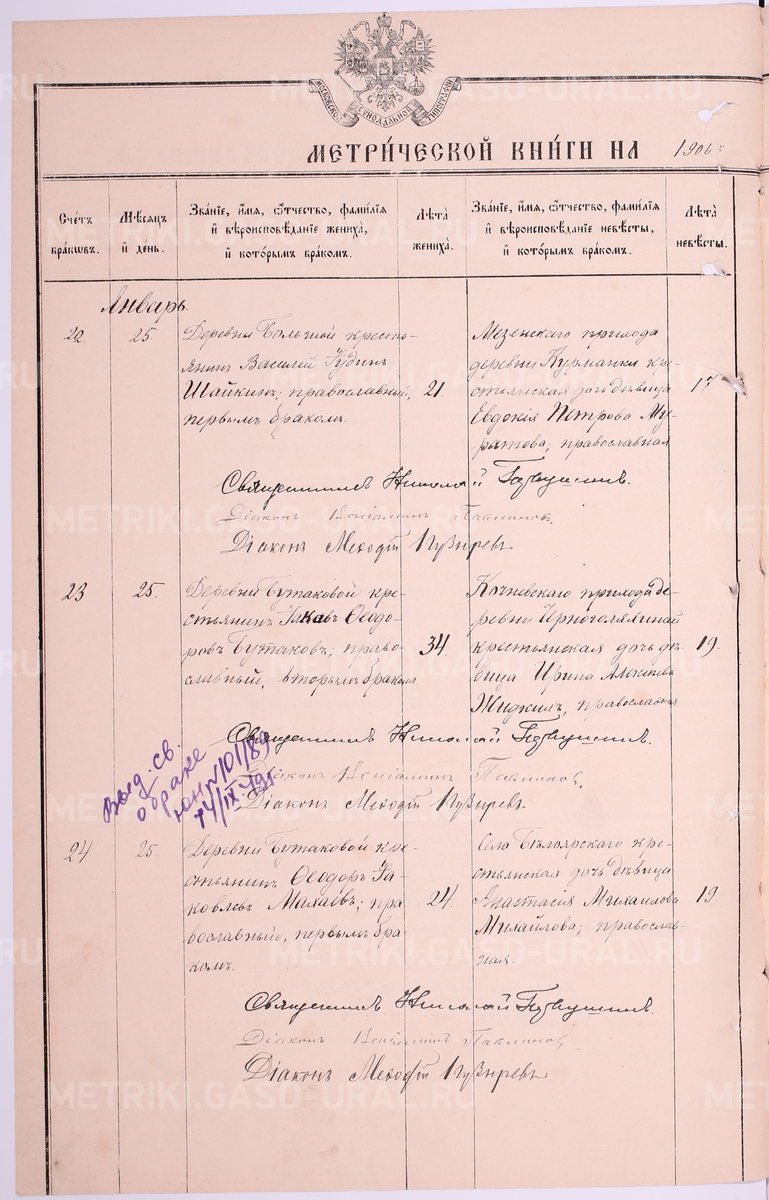 МОСКОВСКОЙ СѴНОДАЛЬНОЙ ТИПОГРАФІИ
МЕТРИ́ЧЕСКОЙ КНИ́ГИ НА 1906 г.
Сче́тъ бра́кωвъ.
Мѣ́сяцъ и҆ де́нь.
Зва́нїе, и҆́мя, ѻ҆́тчество, фами́лїя и҆ вѣроисповѣ́данїе жениха̀, и҆ кото́рымъ бра́комъ.
Лѣ́та жениха̀.
Зва́нїе, и҆́мя, ѻ҆́тчество, фами́лїя и҆ вѣроисповѣ́данїе невѣ́сты, и҆ кото́рымъ бра́комъ.
Лѣ́та невѣ́сты.
Январь.
22. 25.
Деревни Большой кресть-
янинъ Василій Иудинъ
Шайкинъ; православный,
первымъ бракомъ.
21.
Мезенскаго прихода
деревни Курманки кре-
стьянская дочь дѣвица
Евдокія Петрова Му-
ратова; православная
17
Священникъ Николай
Діаконъ Веніаминъ Павлиновъ.
Діаконъ Меѳодій Пузыревъ
23 25.
Деревни Бутаковой кре-
стьянинъ Іаковъ Ѳеодо-
ровъ Бутаковъ; право-
славный, вторымъ бракомъ
34
прихода де-
ревни Черноголяхиной
крестьянская дочь дѣ-
вица Ирина Алексѣева
православная
19.
Священникъ Николай
Діаконъ Веніаминъ Павлиновъ.
Діаконъ Меѳодій Пузыревъ.
Выд. св.
о браке
юн № 101/89
24 25.
Деревни Бутаковой кре-
стьянинъ Ѳеодоръ Іа-
ковлевъ Михаевъ; пра-
вославный, первымъ бра-
комъ.
24.
Села Бѣлоярскаго кре-
стьянская дочь дѣвица
Анастасія Михаилова
Михайлова; православ-
ная.
19
Священникъ Николай
Діаконъ Веніаминъ Павлиновъ,
Діаконъ Меѳодій Пузыревъ
METRIKI.GASO-URAL.RU